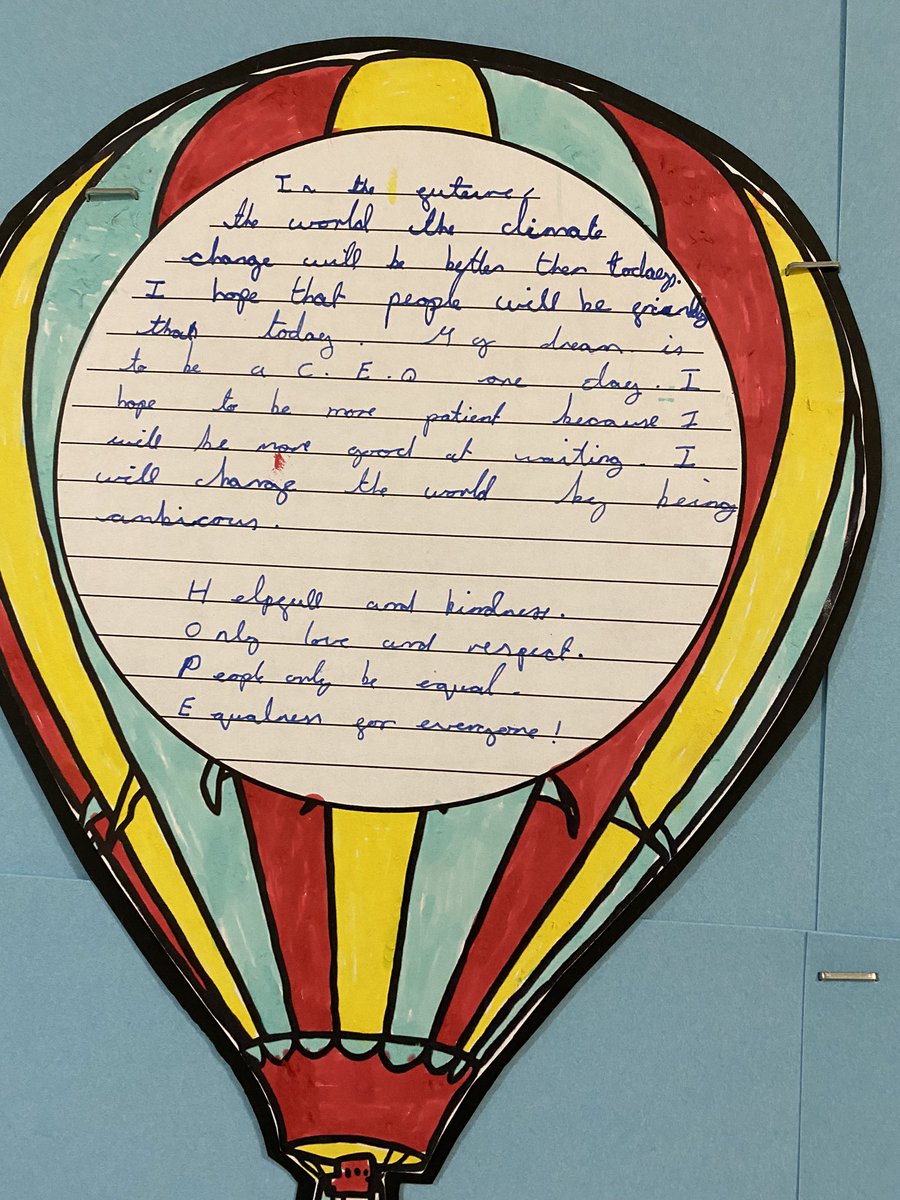 In the future,
the world the climate
change will be better then today.
I hope that people will be friendly
than today. My dream is
to be a C.E.O one day. I
hope to be more patient because I
will be more good at waiting. I
will change the world by being
ambicous.
Helpfull and kindness.
Only love and respect.
People only be equal.
Equalness for everyone!